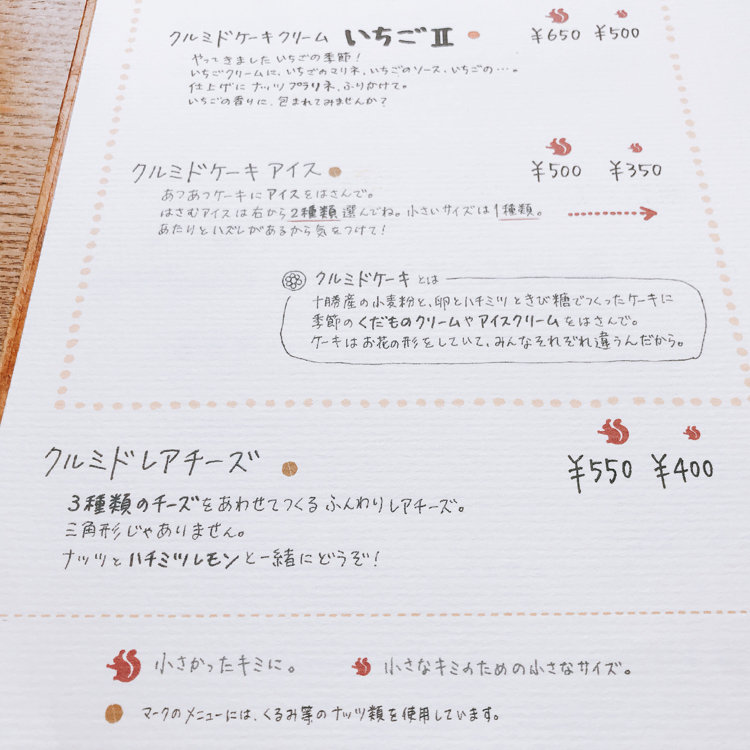 クルミドケーキクリーム いちごⅡ ¥650 ¥500
やってきました いちごの季節!
いちごクリームに、いちごのマリネ、いちごのソース、いちごの…。
仕上げに ナッツ プラリネ、ふりかけて。
いちごの香りに、包まれてみませんか?
クルミドケーキ アイス ¥500 ¥350
あつあつケーキに アイスをはさんで。
はさむアイスは右から2種類選んでね。小さいサイズは1種類。
あたりとハズレがあるから気をつけて!
クルミドケーキ とは
十勝産の小麦粉と、卵とハチミツときび糖でつくったケーキに
季節のくだものクリームやアイスクリームをはさんで。
ケーキはお花の形をしていて、みんなそれぞれ違うんだから。
クルミドレアチーズ ¥550 ¥400
3種類のチーズをあわせてつくるふんわりレアチーズ。
三角形じゃありません。
ナッツとハチミツレモンと一緒にどうぞ!
小さかったキミに。 小さなキミのための小さなサイズ。
マークのメニューには、くるみ等のナッツ類を使用しています。